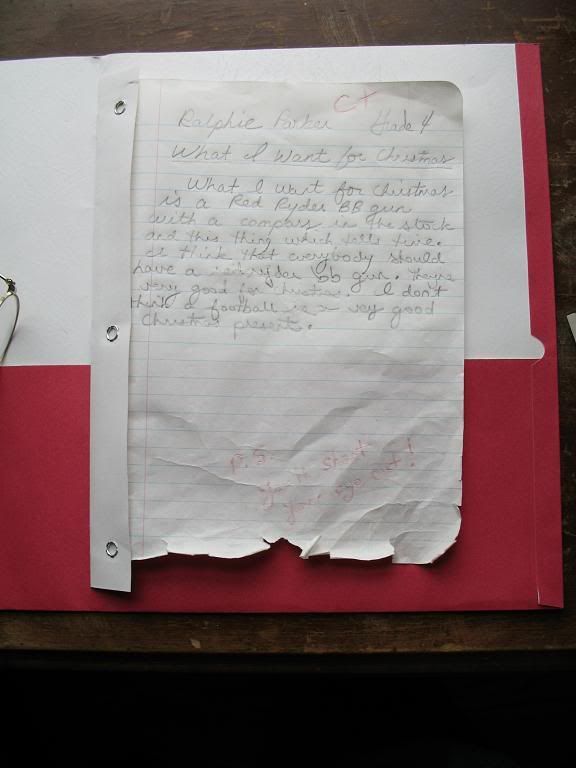 C+
Ralphie Parker Grade 4
What I Want for Christmas
What I want for Christmas
is a Red Ryder BB gun
with a compass in the stock
and this thing which tells time.
I think that everybody should
have a red ryder bb gun. They're
very good for Christmas. I don't
think a football is a very good
Christmas present.
P.S.
You'll shoot
your eye out!